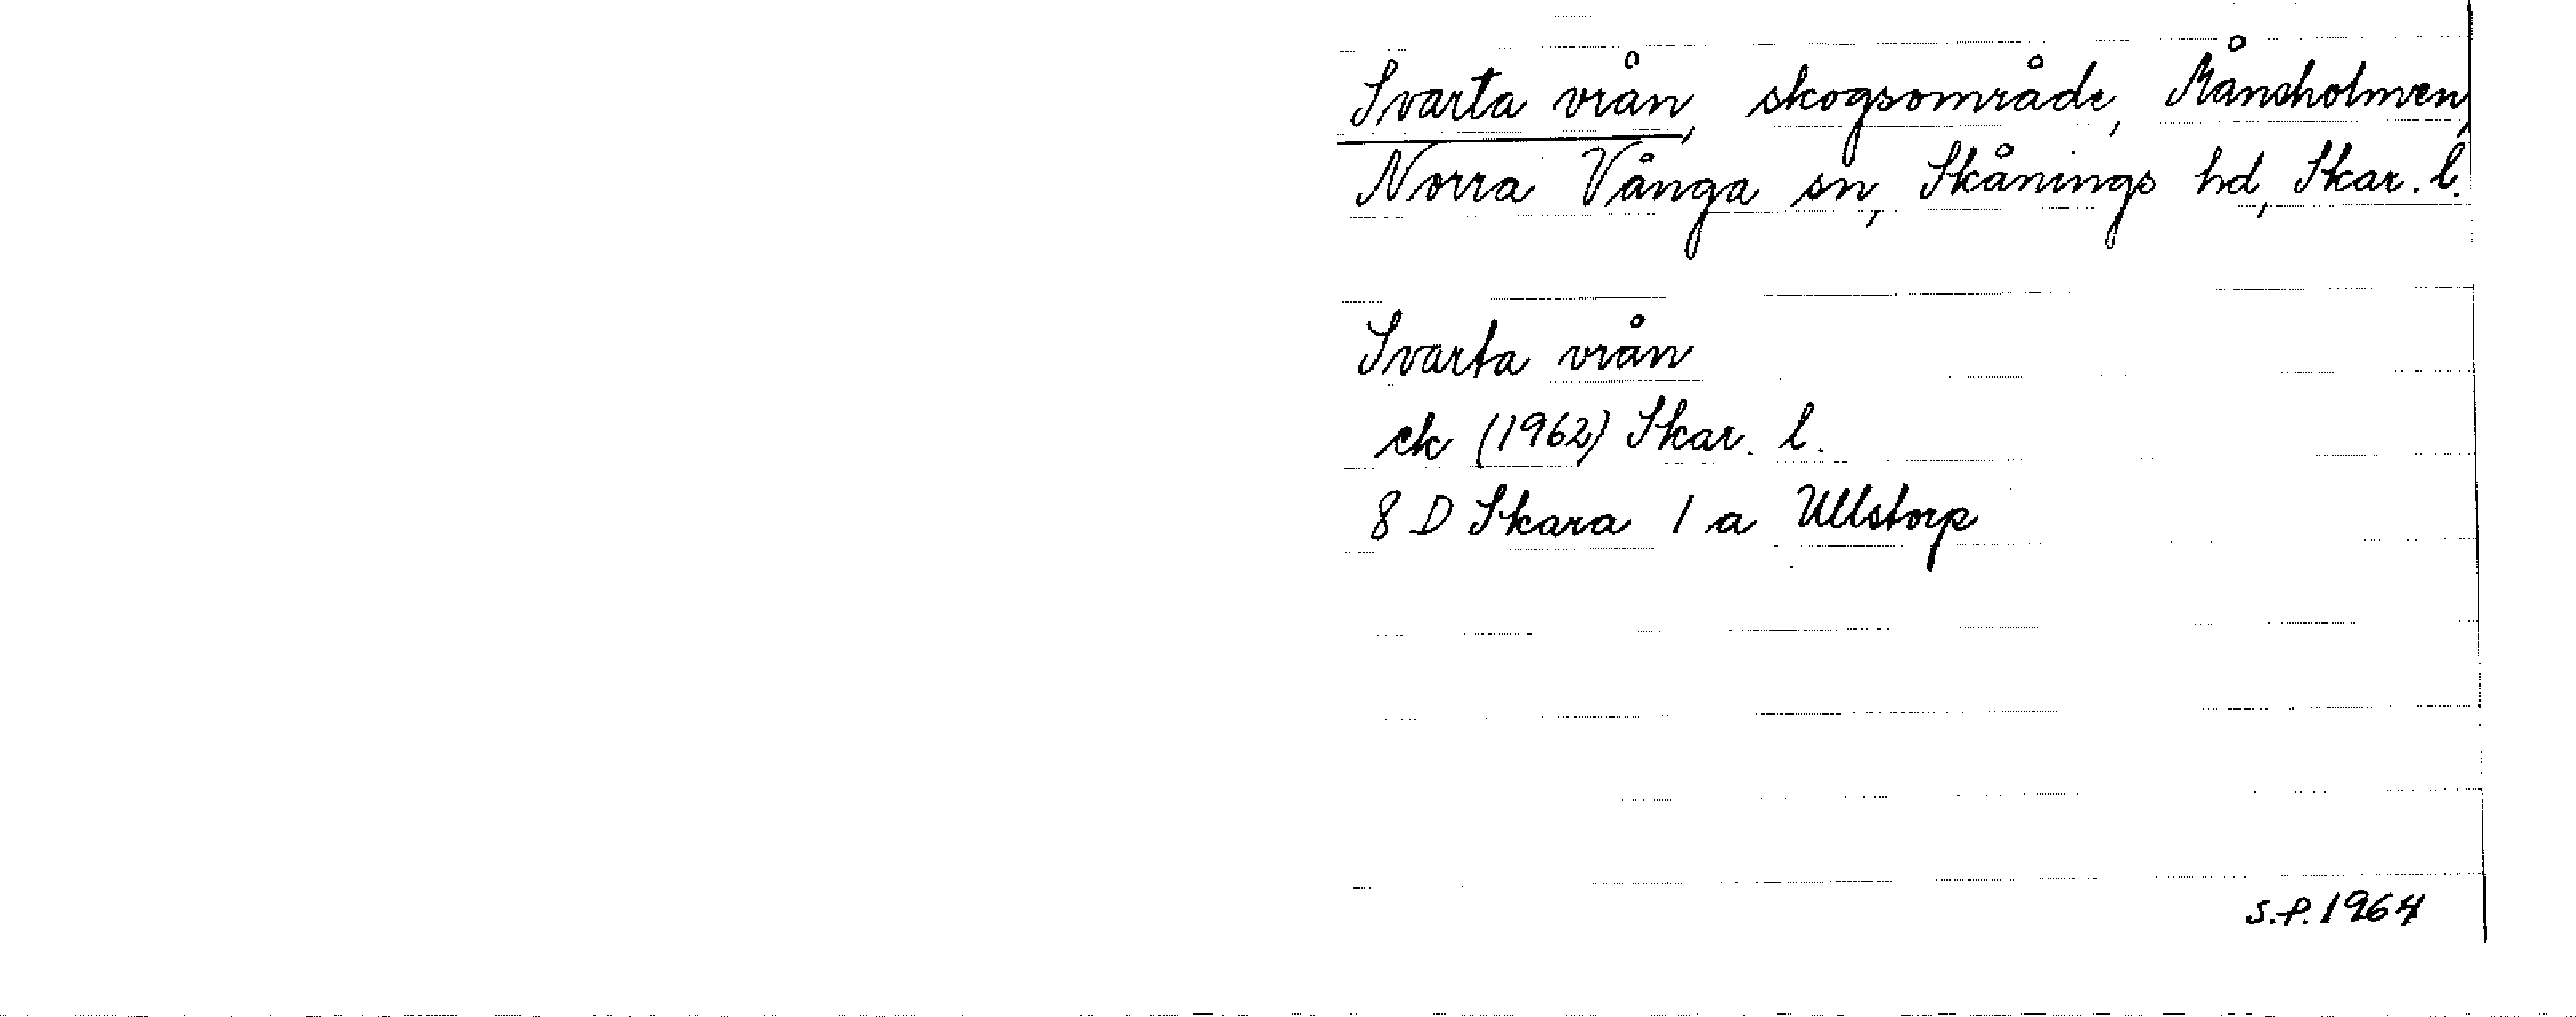 Svarta vrån, skogsområde, Månsholmen,
Norra Vånga sn, Skånings hd, Skar. l.
Svarta vrån
ek (1962) Skar. l.
8 D Skara 1 a Ullstorp
S.P. 1964